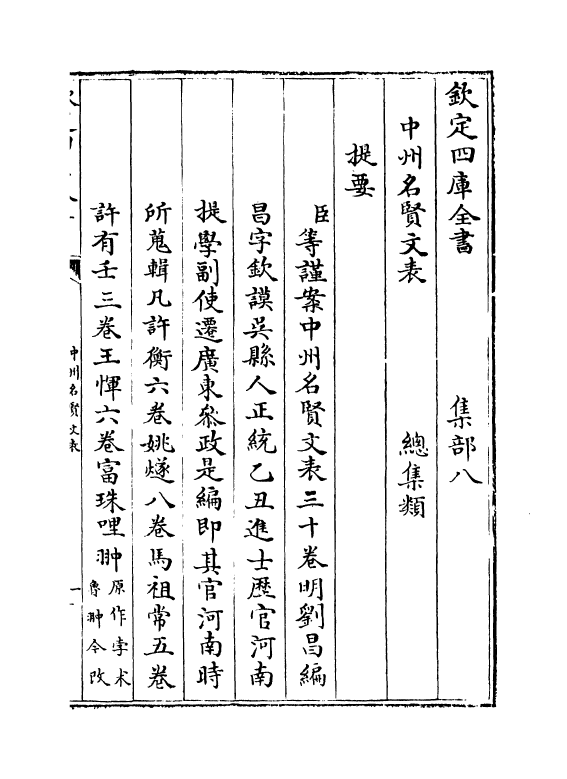 欽定四庫全書　集部八
中州名賢文表　總集類
提要
臣等謹案中州名賢文表三十卷明劉昌編
昌字欽謨吳縣人正統乙丑進士歷官河南
提學副使遷廣東叅政是編即其官河南時
所蒐輯凡許衡六卷姚燧八卷馬祖常五卷
許有壬三卷王惲六卷富珠哩翀原作孛术
魯翀今改
中州名賢文表
一